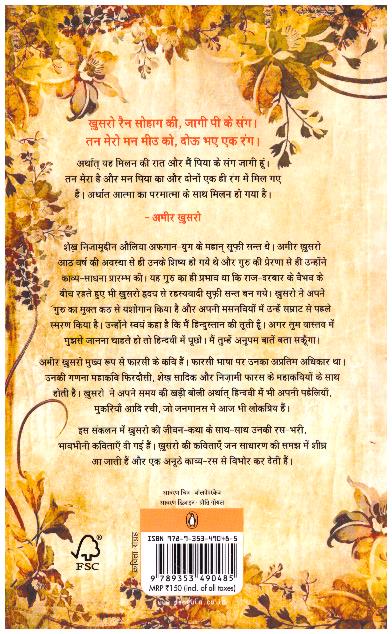 ख़ुसरो रैन सोहाग की, जागी पी के संग।
तन मेरो मन मीउ को, दोऊ भए एक रंग।
अर्थात् यह मिलन की रात और मैं पिया के संग जागी हूं।
तन मेरा है और मन पिया का और दोनों एक ही रंग में मिल गए
हैं। अर्थात आत्मा का परमात्मा के साथ मिलन हो गया है।
– अमीर ख़ुसरो
शेख़ निजामुद्दीन औलिया अफगान-युग के महान् सूफी सन्त थे। अमीर खुसरो
आठ वर्ष की अवस्था से ही उनके शिष्य हो गये थे और गुरु की प्रेरणा से ही उन्होंने
काव्य-साधना प्रारम्भ की। यह गुरु का ही प्रभाव था कि राज-दरबार के वैभव के
बीच रहते हुए भी खुसरो हृदय से रहस्यवादी सूफी सन्त बन गये। खुसरो ने अपने
गुरु का मुक्त कंठ से यशोगान किया है और अपनी मसनवियों में उन्हें सम्राट से पहले
स्मरण किया है। उन्होंने स्वयं कहा है कि मैं हिन्दुस्तान की तूती हूँ। अगर तुम वास्तव में
मुझसे जानना चाहते हो तो हिन्दवी में पूछो। मैं तुम्हें अनुपम बातें बता सकूँगा।
अमीर खुसरो मुख्य रूप से फारसी के कवि हैं। फारसी भाषा पर उनका अप्रतिम अधिकार था।
उनकी गणना महाकवि फिरदौसी, शेख़ सादिक और निज़ामी फारस के महाकवियों के साथ
होती है। खुसरो ने अपने समय की खड़ी बोली अर्थात् हिन्दवी में भी अपनी पहेलियाँ,
मुकरियाँ आदि रची, जो जनमानस में आज भी लोकप्रिय हैं।
इस संकलन में खुसरो की जीवन-कथा के साथ-साथ उनकी रस-भरी,
भावभीनी कविताएँ दी गई हैं। खुसरो की कविताएँ जन साधारण की समझ में शीघ्र
आ जाती हैं और एक अनूठे काव्य-रस से विभोर कर देती हैं।
आवरण चित्र
आवरण डिज़ाइन
कविता संग्रह
FSC
ISBN 978-9-353-49048-5
9 789353 490485
MRP ₹150 (incl. of all taxes)
www.penguin.co.in